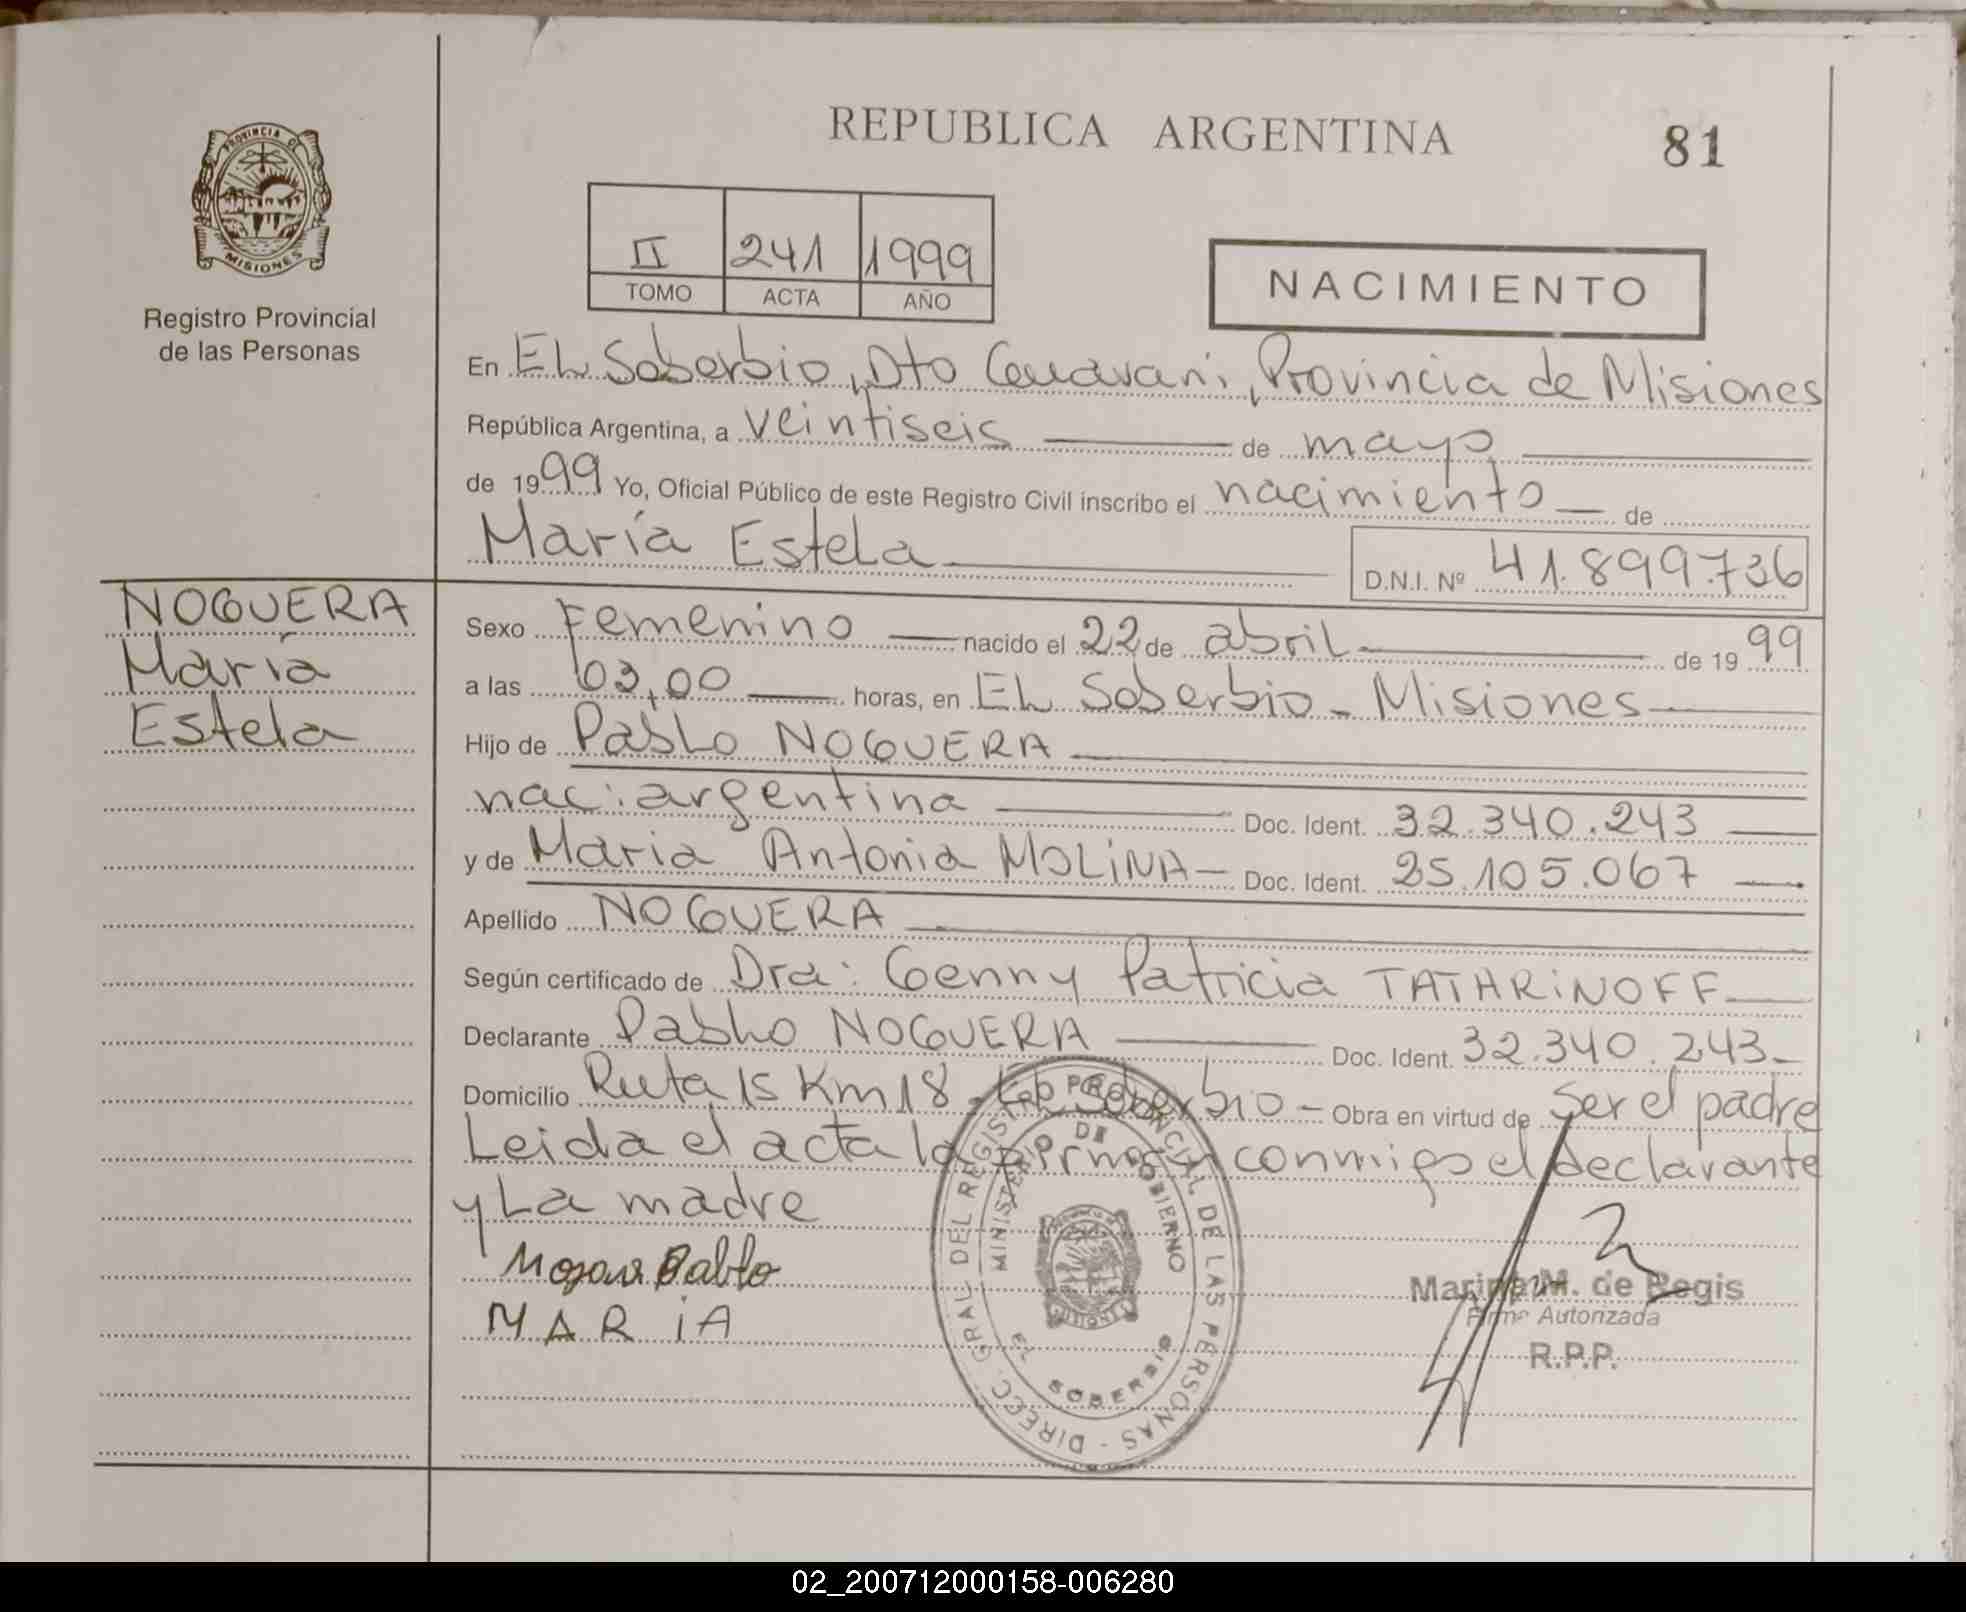 PROVINCIA DE
MISIONES
Registro Provincial
de las Personas
REPUBLICA ARGENTINA
81
II 241 1999
TOMO ACTA AÑO
NACIMIENTO
En EL Soberbio, Dto Guarani, Provincia de Misiones
República Argentina, a veintiseis de mayo
de 1999 Yo, Oficial Público de este Registro Civil inscribo el nacimiento de
María Estela D.N.I. Nº 41.899.736
NOGUERA
María
Estela
Sexo Femenino nacido el 22 de abril de 1999
a las 03,00 horas, en EL Soberbio - Misiones
Hijo de Pablo NOGUERA
nac: argentina Doc. Ident. 32.340.243
y de Maria Antonia MOLiNA - Doc. Ident. 25.105.067
Apellido NOGUERA
Según certificado de Dra: Genny Patricia TATHRiNOFF
Declarante Pablo NOGUERA Doc. Ident. 32.340.243
Domicilio Ruta 15 Km 18 - Soberbio - Obra en virtud de Ser el padre
Leida el acta la firman conmigo el declarante
y La madre
Pablo
MARiA
DIRECC. GRAL. DEL REGISTRO PROVINCIAL DE LAS PERSONAS -
MINISTERIO DE GOBIERNO
MISIONES
EL SOBERBIO
Marina M. de Regis
Firma Autorizada
R.P.P.
02_200712000158-006280